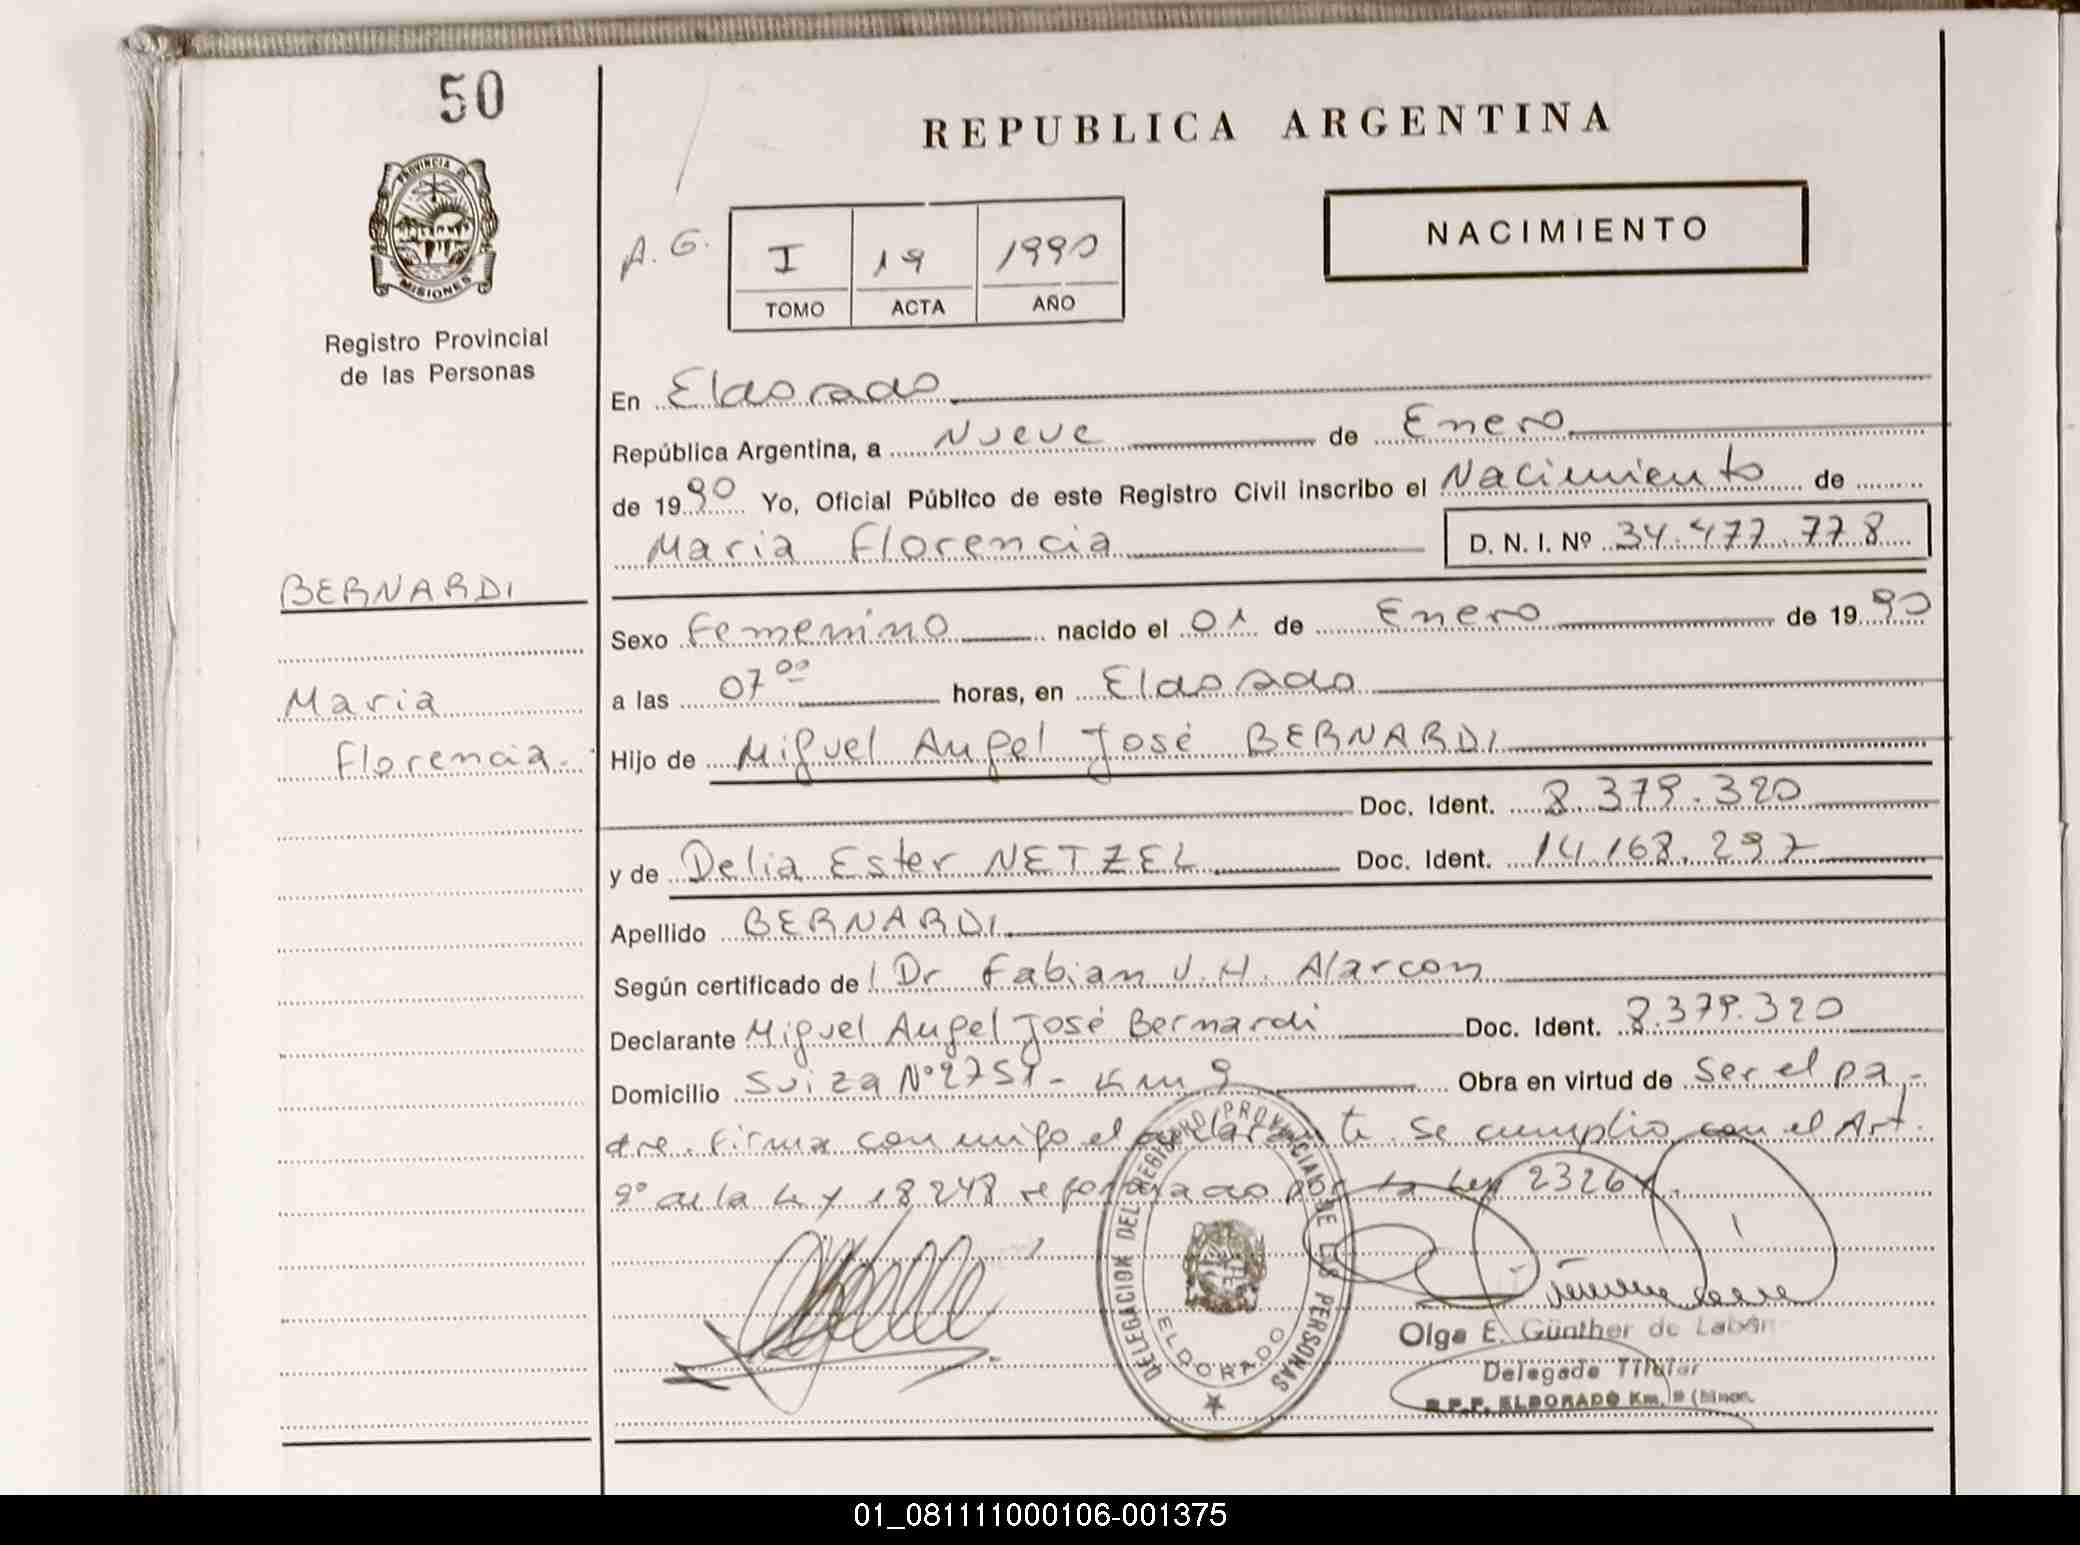 50
REPUBLICA ARGENTINA
PROVINCIA DE
MISIONES
A. G.
I 19 1990
TOMO ACTA AÑO
NACIMIENTO
Registro Provincial
de las Personas
En Eldorado
República Argentina, a Nueve de Enero
de 1990 Yo, Oficial Público de este Registro Civil inscribo el Nacimiento de
Maria Florencia D. N. I. Nº 34.477.778
BERNARDI
Maria
Florencia.
Sexo Femenino nacido el 01 de Enero de 1990
a las 07 00 horas, en Eldorado
Hijo de Miguel Angel José BERNARDI
Doc. Ident. 8.379.320
y de Delia Ester NETZEL Doc. Ident. 14.168.297
Apellido BERNARDI
Según certificado de l Dr Fabian J.H. Alarcon
Declarante Miguel Angel José Bernardi Doc. Ident. 8.379.320
Domicilio Suiza Nº 2751 - Km 9 Obra en virtud de Ser el pa-
dre. Firma conmigo el declarante. Se cumplio con el Art.
2º de la Ley 18248 reformado por la Ley 23264.
DELEGACION DEL REGISTRO PROVINCIAL DE LAS PERSONAS
ELDORADO
Olga E. Günther de
Delegada Titular
R.P.P. ELDORADO Km. 9
01_081111000106-001375